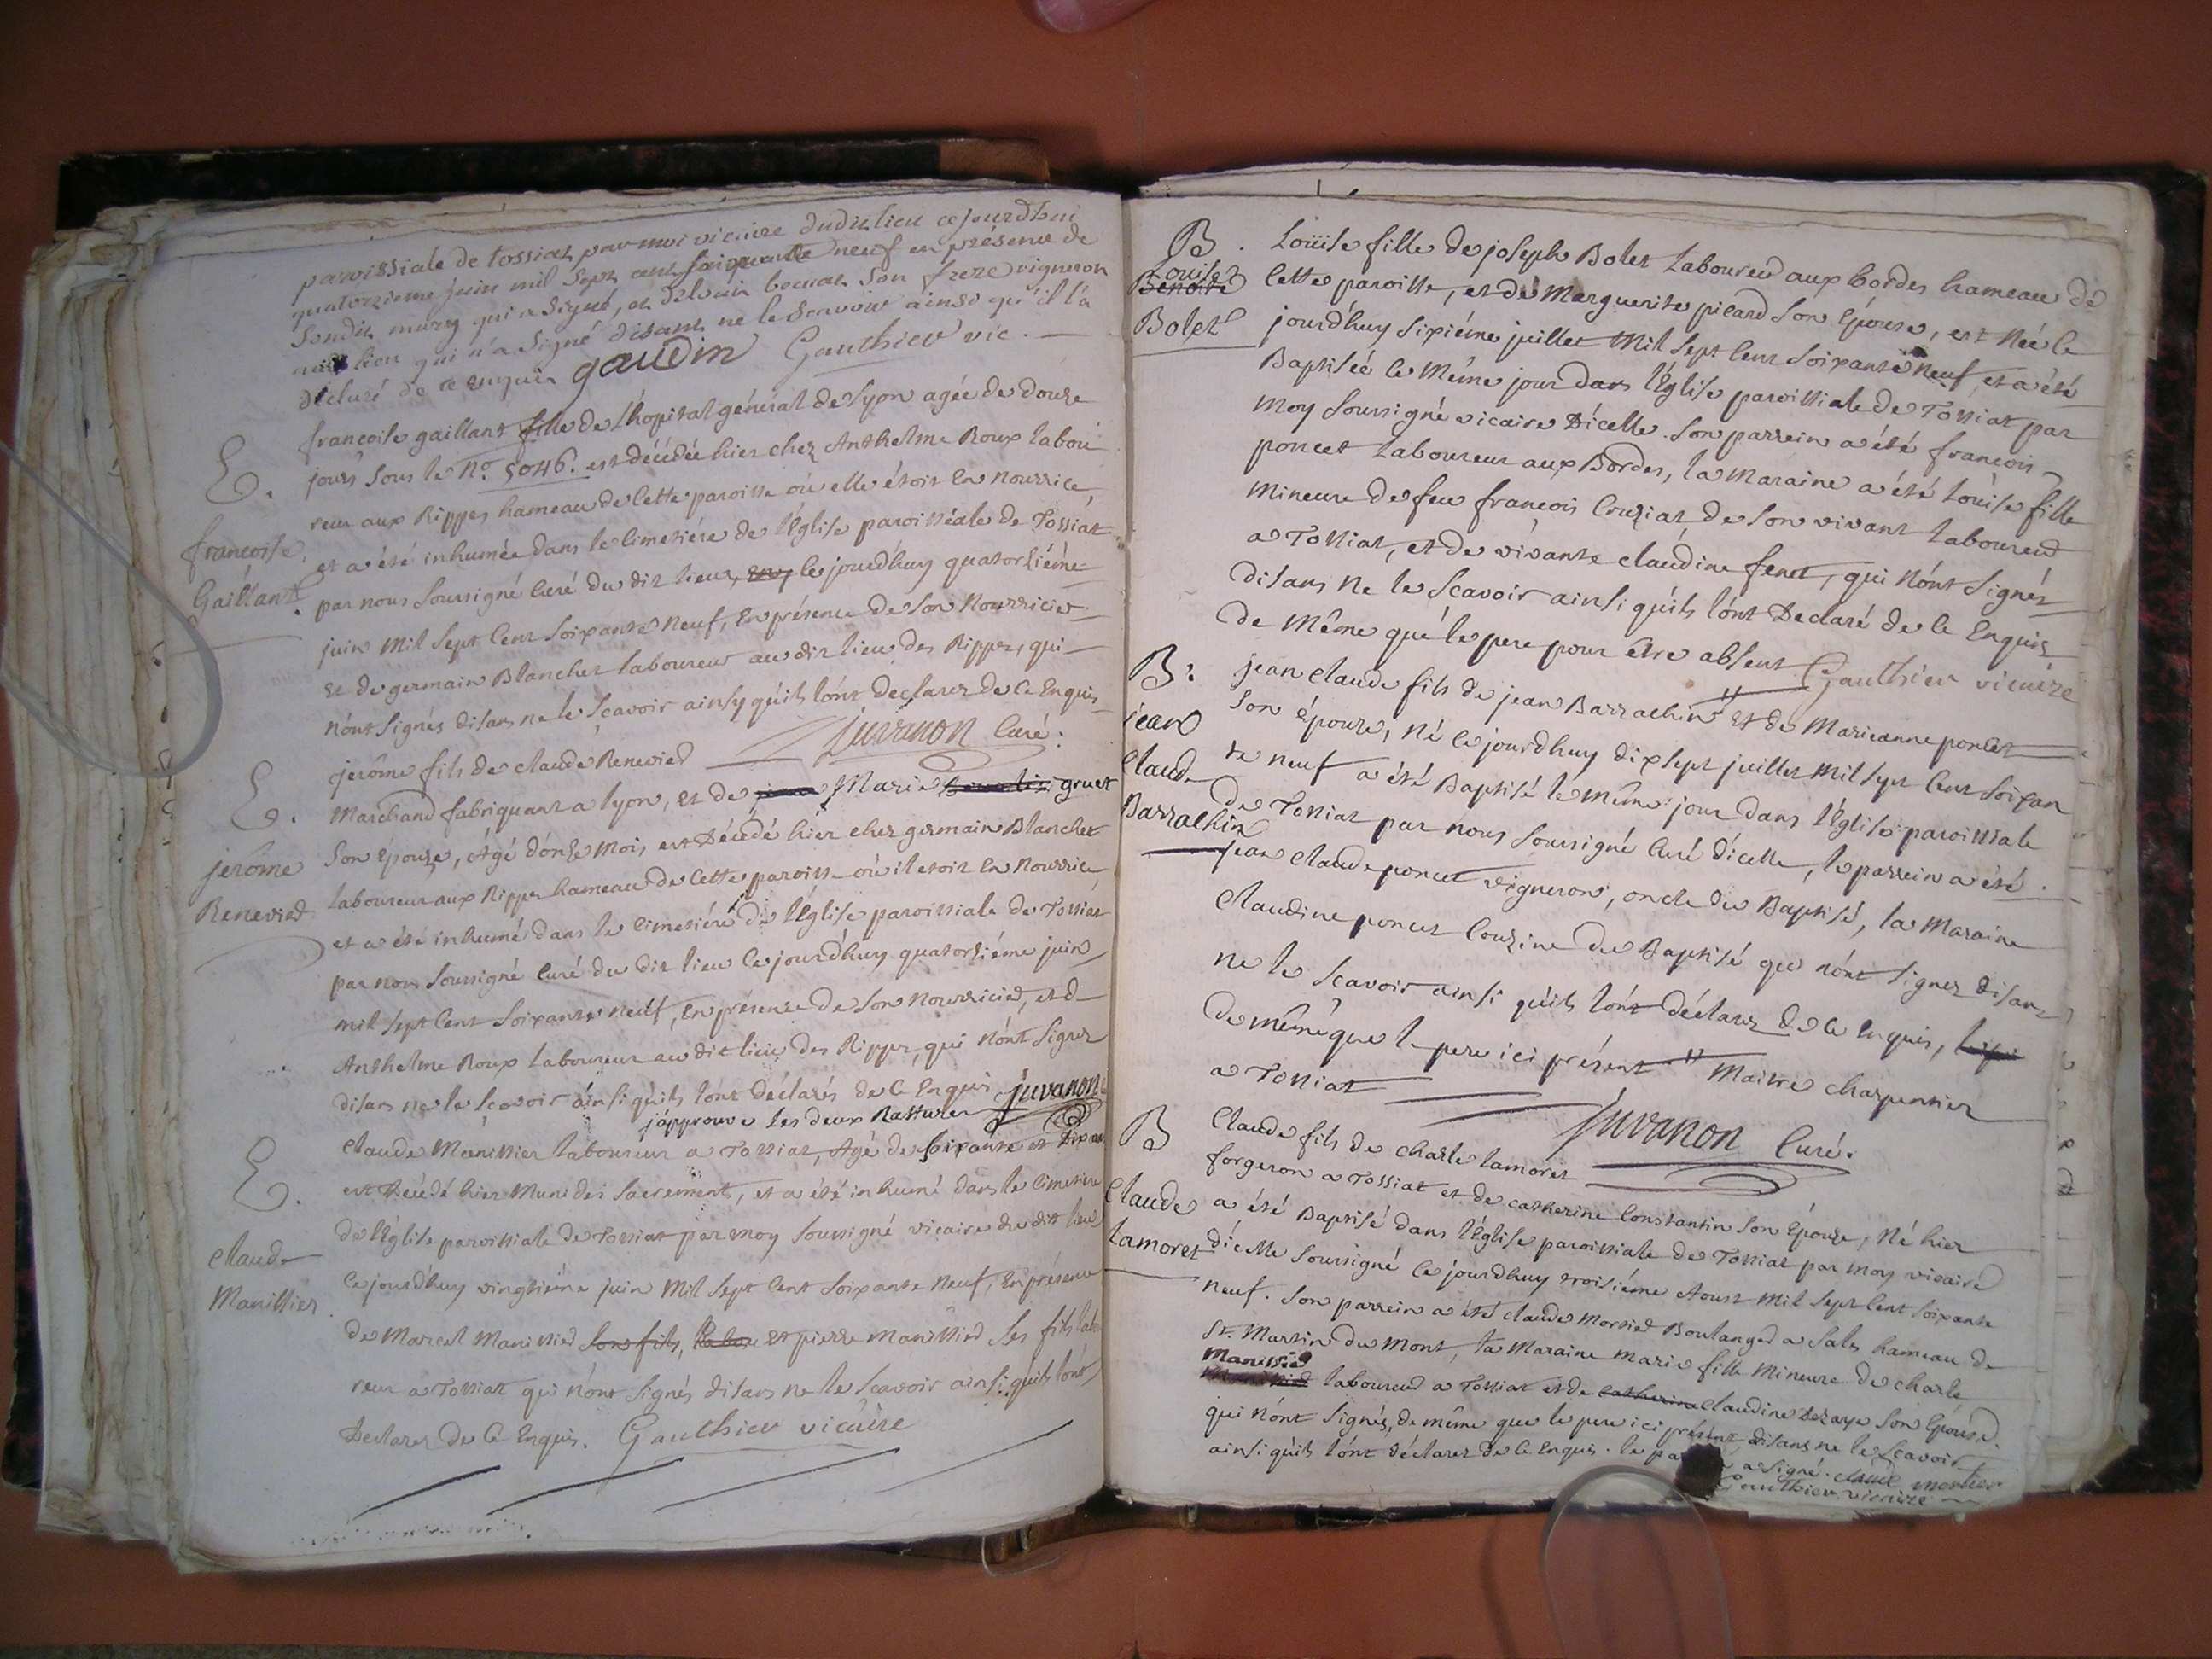 paroissiale de tossiat par moi vicaire dudit lieu cejourdhui
quatorzieme juin mil sept cent soixante neuf en présence de
sondit mary qui a signé, et de bocuat son frere vigneron
lieu qui n'a signé disant ne le scavoir ainsi qu'il l'a
déclaré de ce enquis gaudin Gauthier vic.
E.
francoise
Gaillant
francoise gaillant fille de l'hopital général de Lyon agée de douze
jours sous le No. 5046. est décédée hier chez Anthelme Roux labou
reur aux Rippes hameau de cette paroisse où elle étoit en nourrice,
et a été inhumée dans le cimetiére de l'Eglise paroissiale de Tossiat
par nous soussigné curé du dit lieu, ce jourd'huy quatorziéme
juin mil sept cent soixante neuf, en présence de son nourricier
et de germain Blanchet laboureur au dit lieu des Rippes, qui
n'ont signés disans ne le scavoir ainsy qu'ils l'ont declarez de ce Enquis
juvanon Curé.
E.
jerôme
Renevied
jerôme fils de claude Renevied
Marchand fabriquant a lyon, et de Marie gruet
son Epouze, Agé d'onze mois est Décédé hier chez germain Blanchet
Laboureur aux Rippes hameau de cette paroisse où il etoit en nourrice,
et a été inhumé dans le cimetiére de l'Eglise paroissiale de Tossiat
par nous soussigné curé du dit lieu ce jourd'huy quatorziéme juin
mil sept cent soixante neuf, en présence de son nourricier, et d
Anthelme Roux Laboureur au dit lieu des Rippes, qui n'ont signez
disans ne le scavoir ainsi qu'ils l'ont déclarés de ce Enquis juvanon
j'approuve les deux Rattures
E.
claude
Manissier
Claude Manissier laboureur a Tossiat, Agé de soixante et dix ans
est décédé hier muni des sacrements, et a été inhumé dans le cimetiere
de l'Eglise paroissiale de Tossiat par moy soussigné vicaire du dit lieu
ce jourd'huy vingtiéme juin mil sept cent soixante neuf, en présence
de Marcel Manissied son fils, et pierre Manissied ses fils labou
reur a Tossiat qui n'ont signés disans ne le scavoir ainsi qu'ils l'ont
Declarez de ce Enquis. Gauthier vicaire
B.
Louise
Benoite
Bolet
Loüise fille de joseph Bolet Laboureur aux bordes hameau de
cette paroisse, et de Marguerite picard son Epouse, est Née le
jourd'huy sixiéme juillet mil sept cent soixante neuf et a été
Baptisée le même jour dans l'Eglise paroissiale de Tossiat par
moy soussigné vicaire d'icelle. son parrein a été francois
poncet Laboureur aux Bordes, la maraine a été Loüise fille
mineure de feu francois Couziat de son vivant laboureur
a Tossiat, et de vivante claudine fenet, qui n'ont signés
disans ne le scavoir ainsi qu'ils l'ont Declaré de ce Enquis
de même que le pere pour être absent Gauthier vicaire
B:
jean
Claude
Barrachin
jean claude fils de jean Barrachin " et de Marieanne poncet
son épouze, né ce jourd'huy dix sept juillet mil sept cent soixan
te neuf a été Baptisé le même jour dans l'Eglise paroissiale
de Tossiat par nous soussigné curé d'icelle, le parrein a été
jean claude poncet vigneron, oncle du Baptisé, la Maraine
Claudine poncet Couzine du Baptisé qui n'ont signez disans
ne le scavoir ainsi qu'ils l'ont déclarez de ce Enquis,
de même que le pere ici présent " Maitre charpentier
a Tossiat
juvanon Curé.
B
Claude
Lamoret
Claude fils de charle Lamoret
forgeron a Tossiat et de catherine Constantin son Epouze, Né hier
a été Baptisé dans l'Eglise paroissiale de Tossiat par moy vicaire
d'icelle soussigné ce jourd'huy troisiéme Aoust mil sept cent soixante
neuf. son parrein a été claude Mortied Boulanger a Sales hameau de
St. Martin du Mont, la Maraine marie fille mineure de charle
Manissied
laboureur a Tossiat et de catherine claudine Dezaye son Epouse.
qui n'ont signés, de même que le pere ici présent, disans ne le scavoir
ainsi qu'ils l'ont déclarez de ce Enquis. le pa a signé. claude mortier
Gauthier vicaire